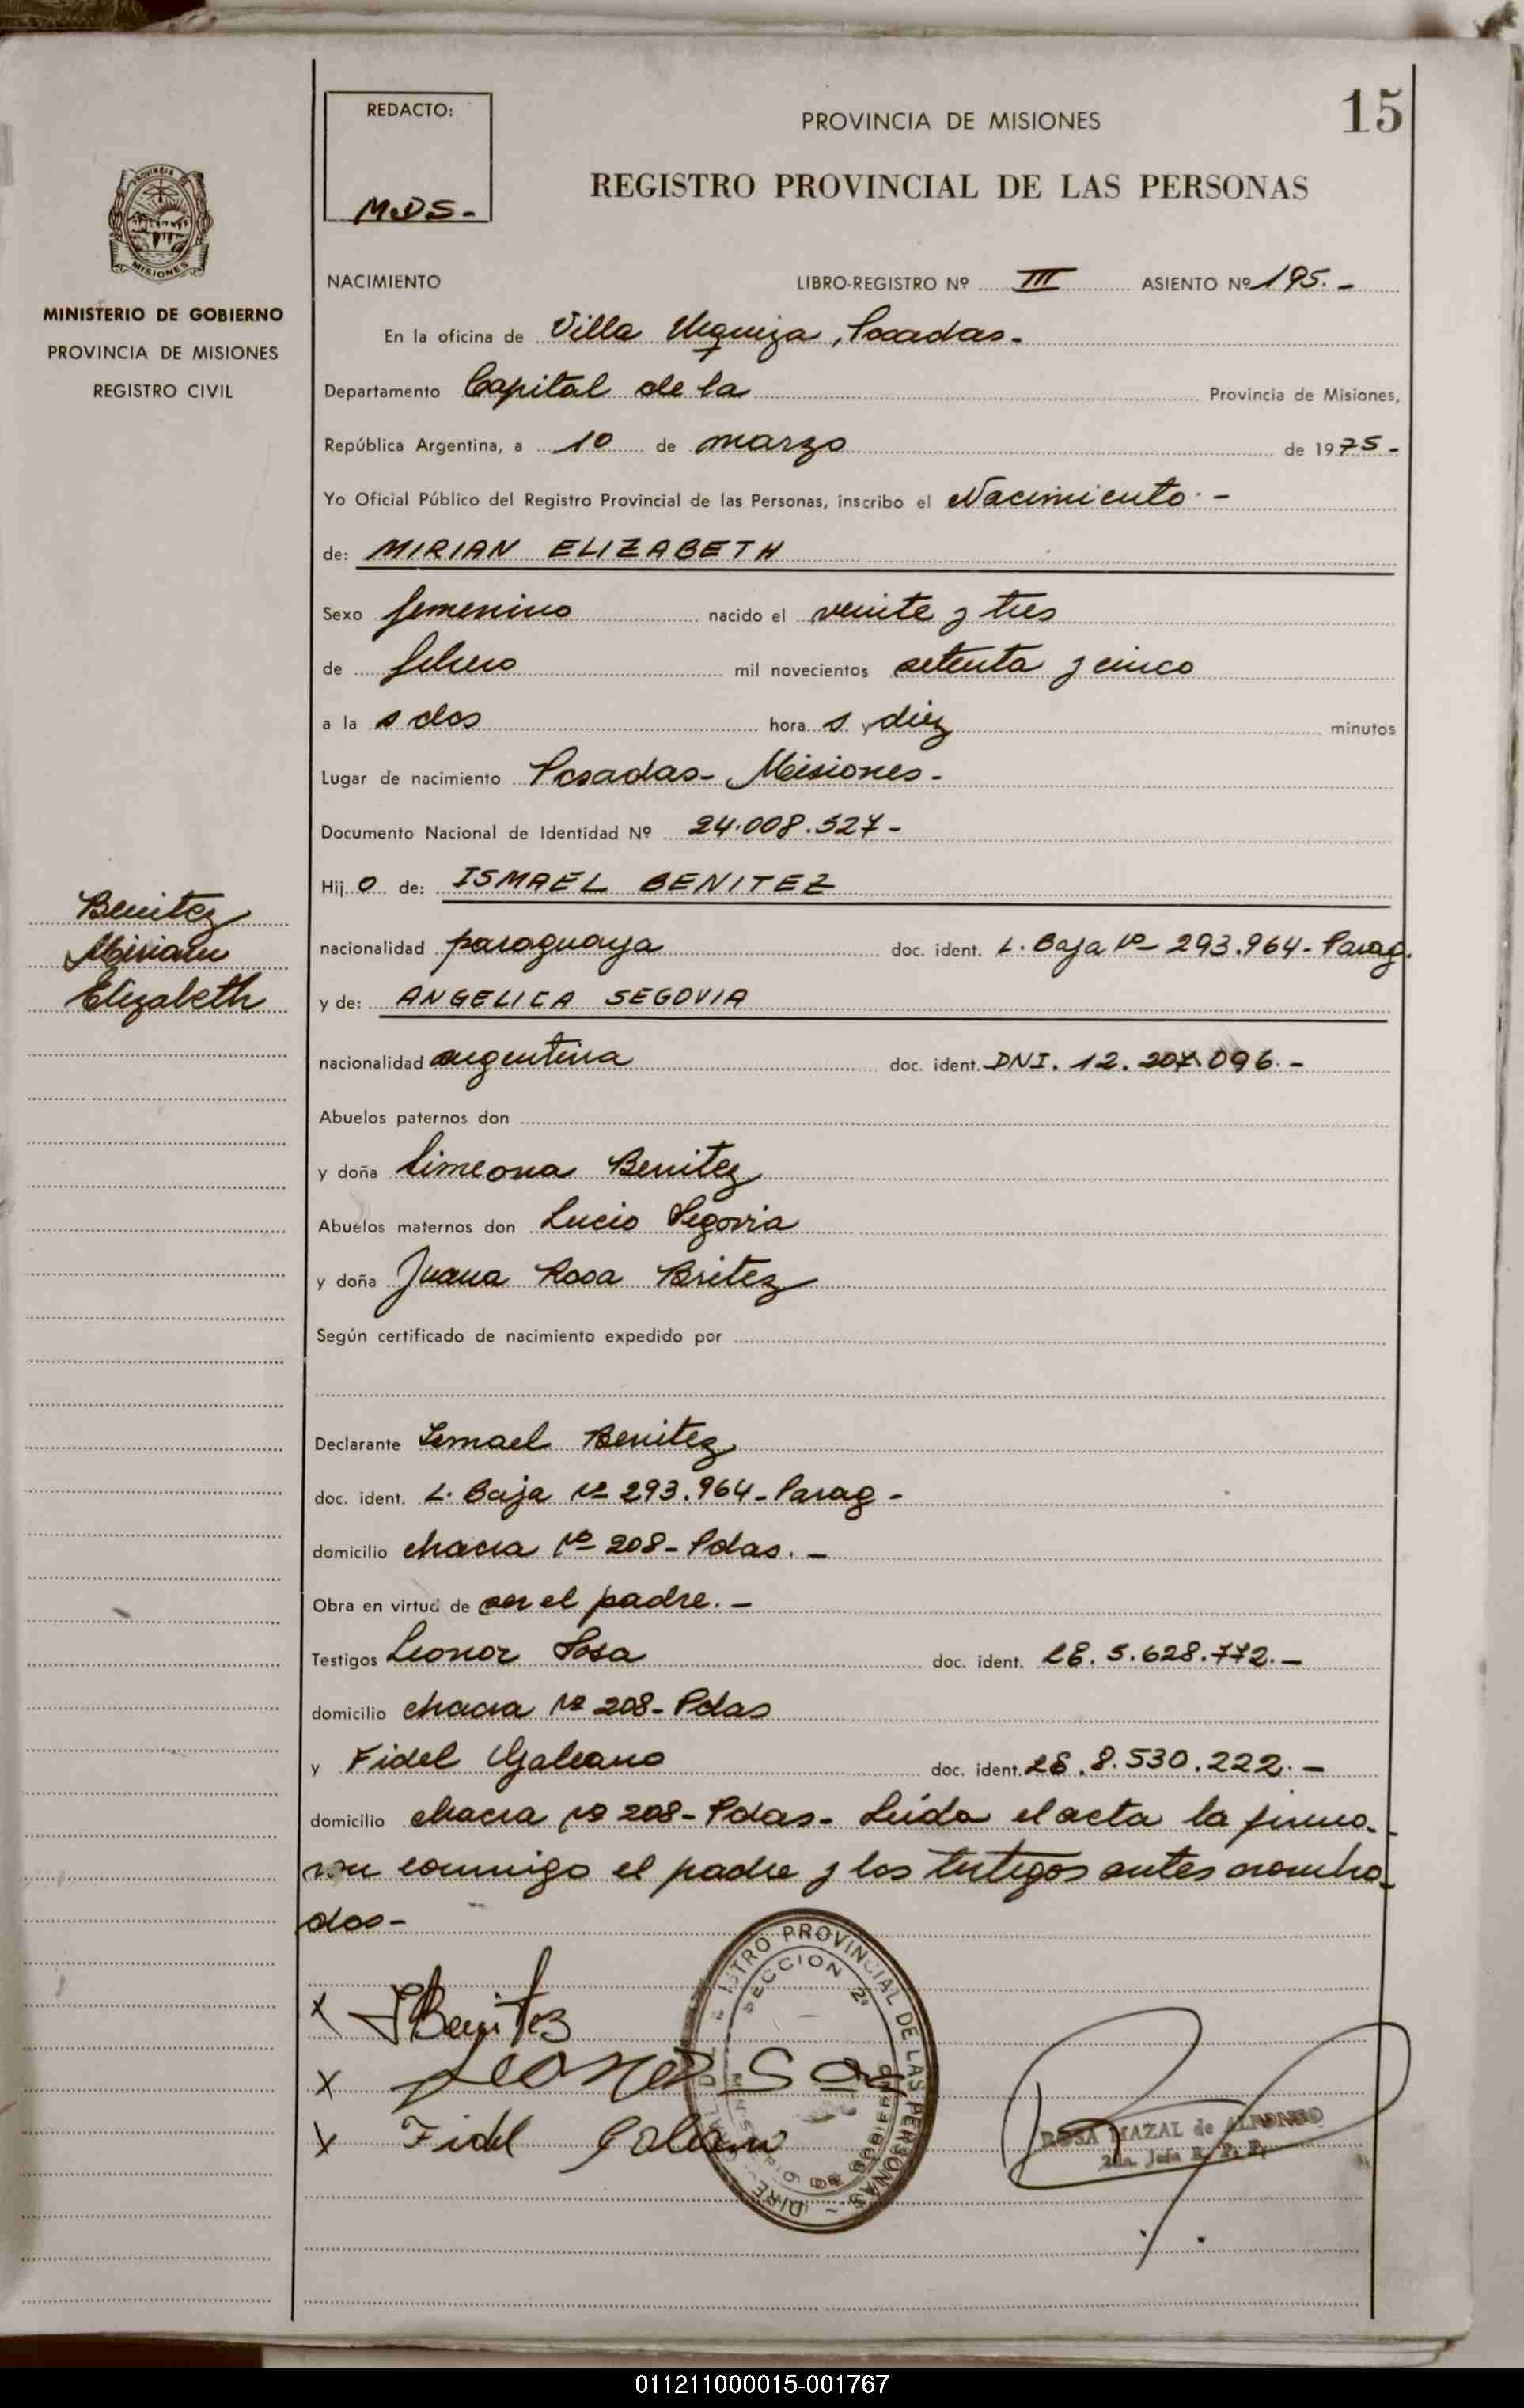 15
REDACTO:
M.D.S-
PROVINCIA DE MISIONES
REGISTRO PROVINCIAL DE LAS PERSONAS
PROVINCIA DE
MISIONES
MINISTERIO DE GOBIERNO
PROVINCIA DE MISIONES
REGISTRO CIVIL
NACIMIENTO LIBRO-REGISTRO Nº III ASIENTO Nº 195.-
En la oficina de Villa Urquiza, Posadas-
Departamento Capital de la Provincia de Misiones,
República Argentina, a 10 de marzo de 1975-
Yo Oficial Público del Registro Provincial de las Personas, inscribo el Nacimiento.-
de: MIRIAN ELIZABETH
Sexo femenino nacido el veinte y tres
de febrero mil novecientos setenta y cinco
a la s dos hora s y diez minutos
Lugar de nacimiento Posadas- Misiones-
Documento Nacional de Identidad Nº 24.008.527-
Hij o de: ISMAEL BENITEZ
Benitez
Miriam
Elizabeth
nacionalidad paraguaya doc. ident. L. Baja Nº 293.964- Parag.
y de: ANGELICA SEGOVIA
nacionalidad argentina doc. ident. DNI. 12.207.096.-
Abuelos paternos don
y doña Simeona Benitez
Abuelos maternos don Lucio Segovia
y doña Juana Rosa Britez
Según certificado de nacimiento expedido por
Declarante Ismael Benitez
doc. ident. L. Baja Nº 293.964- Parag-
domicilio chacra Nº 208- Pdas.-
Obra en virtud de ser el padre.-
Testigos Leonor Sosa doc. ident. LE. 5.628.772.-
domicilio chacra Nº 208- Pdas
y Fidel Galeano doc. ident. LE. 8.530.222.-
domicilio chacra Nº 208- Pdas- Leida el acta la firma-
ron conmigo el padre y los testigos antes nombra-
dos-
x Benitez
x Leonor Sosa
x Fidel Galeano
REGISTRO PROVINCIAL DE LAS PERSONAS
SECCION 2ª
MINISTERIO DE GOBIERNO
ROSA MAZAL de ALFONSO
2da. Jefa R. P. P.
011211000015-001767